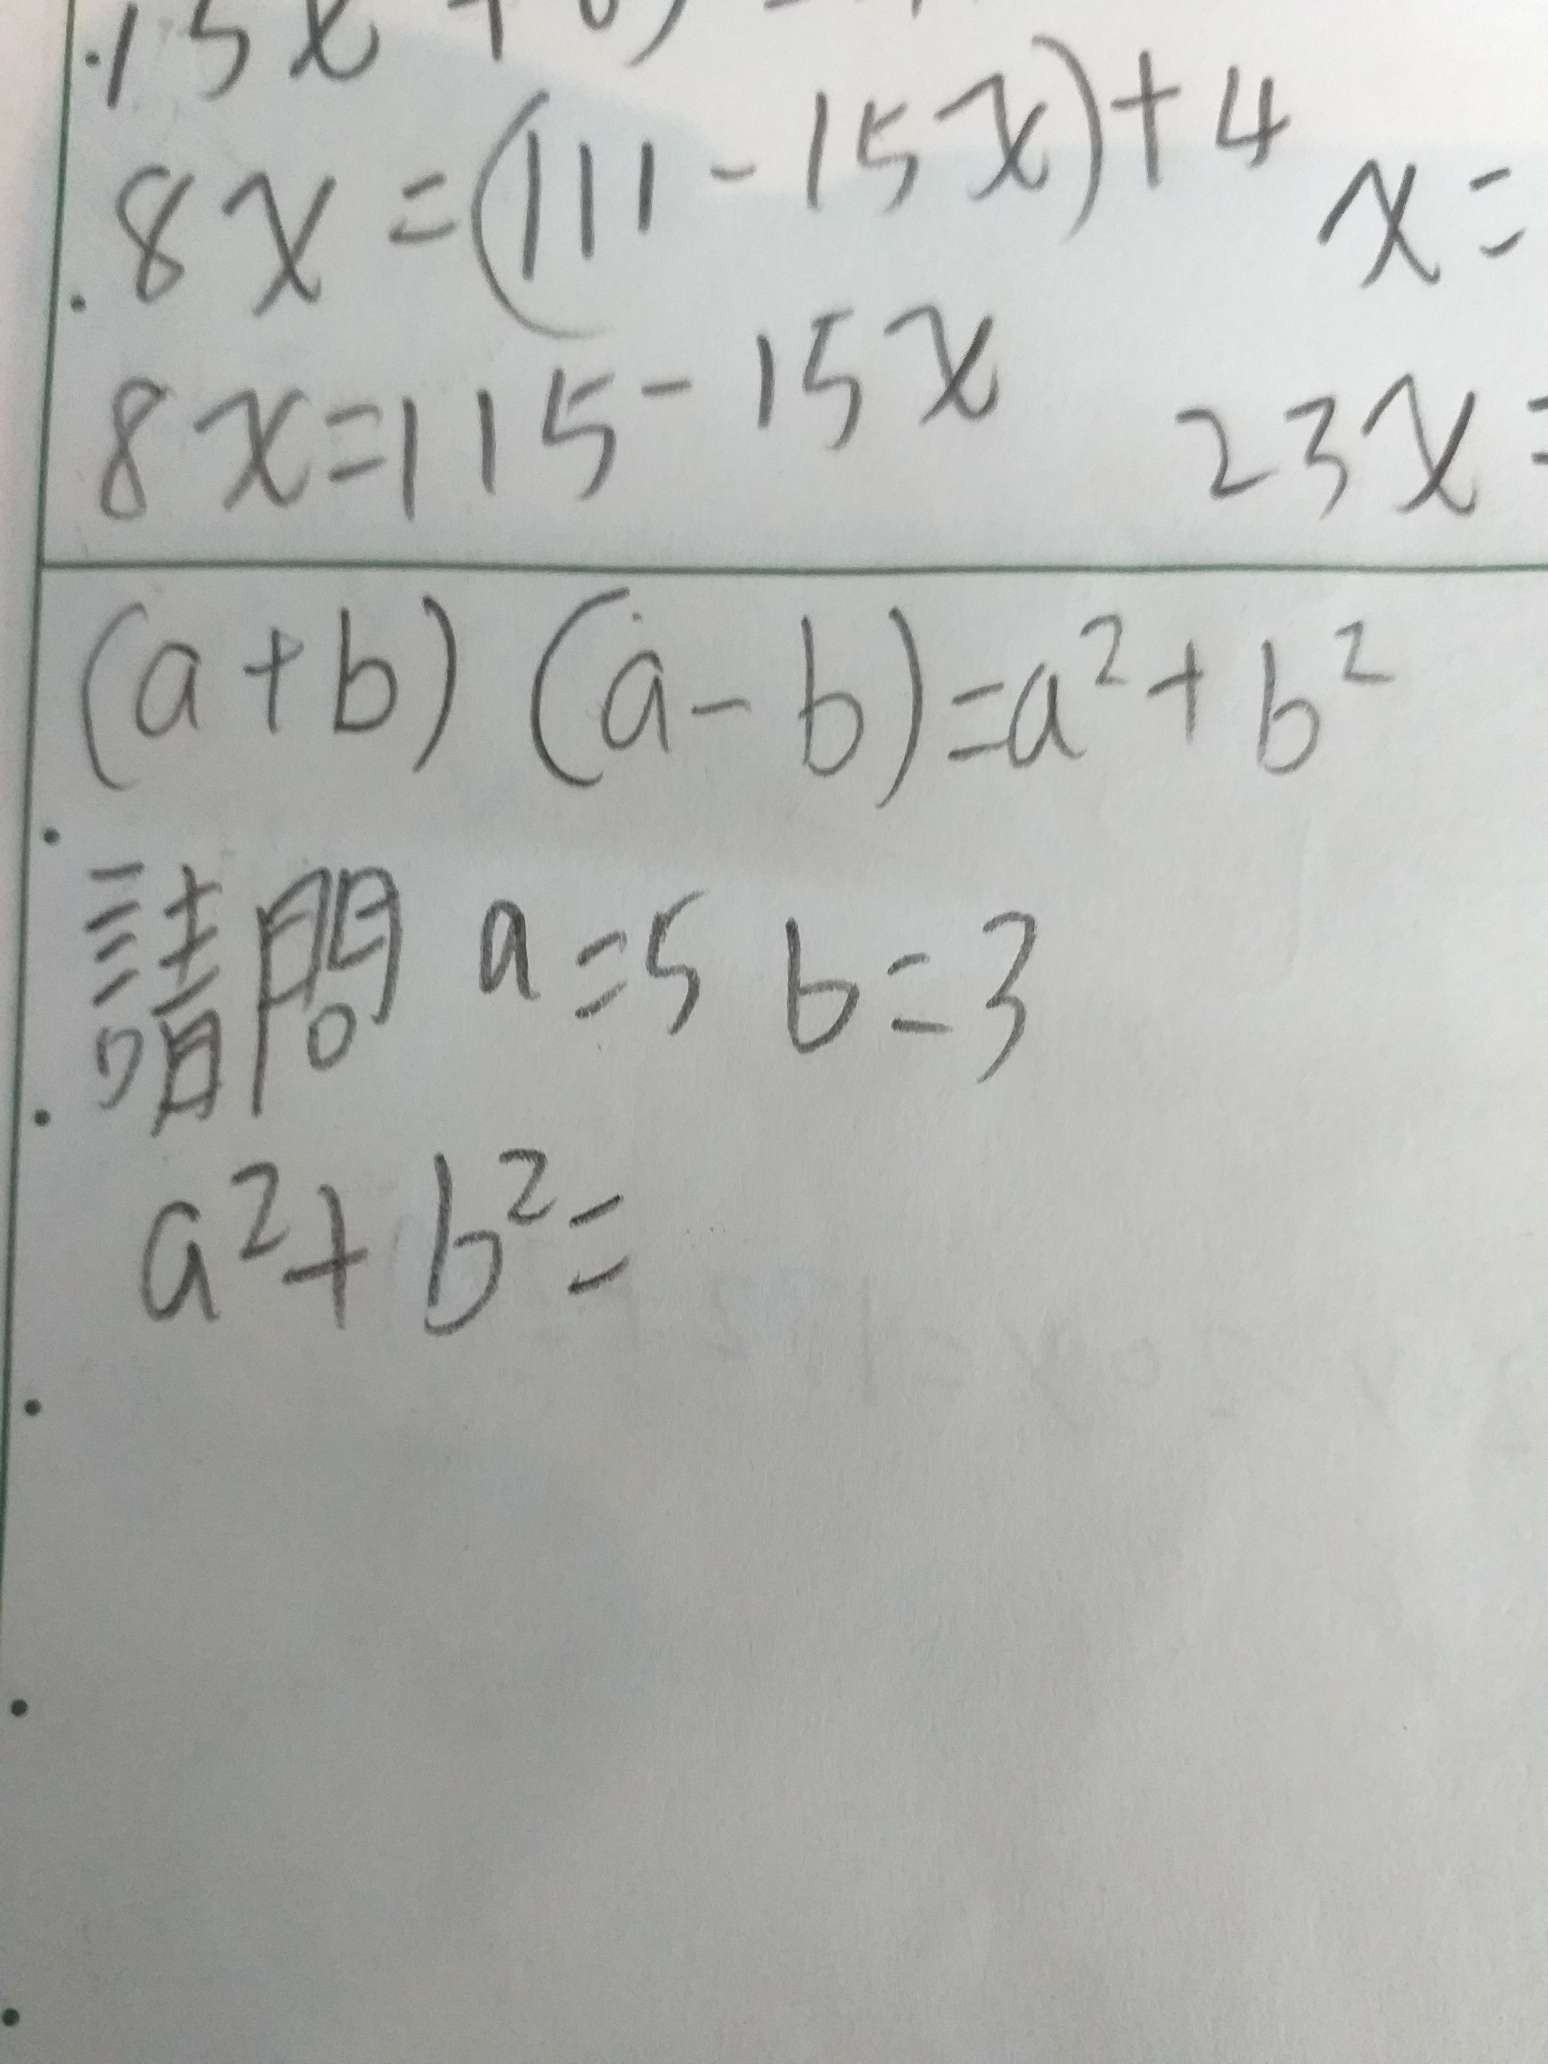 15x+
8x=(111-15x)+4 x=
8x=115-15x 23x=
(a+b)(a-b)=a²+b²
請問 a=5 b=3
a²+b²=